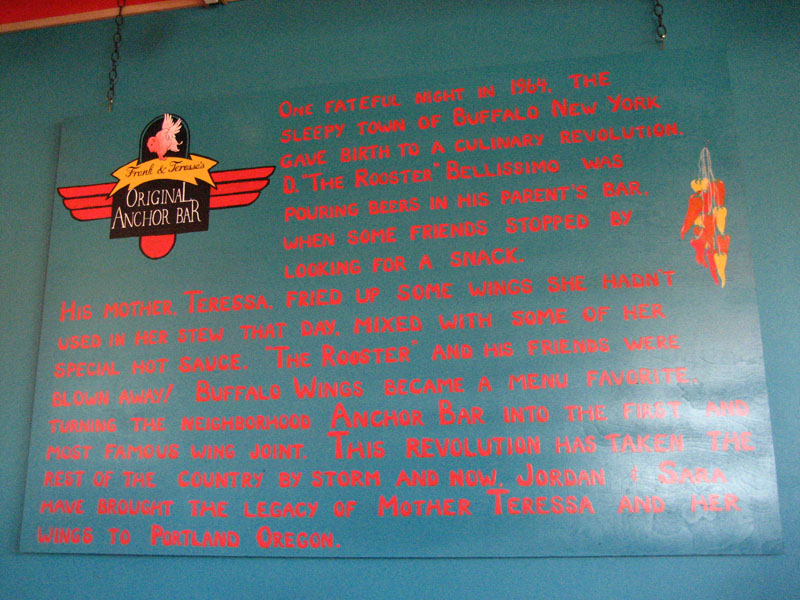 Frank & Teressa's
ORIGINAL
ANCHOR BAR
ONE FATEFUL NIGHT IN 1964, THE
SLEEPY TOWN OF BUFFALO NEW YORK
GAVE BIRTH TO A CULINARY REVOLUTION.
D. "THE ROOSTER" BELLISSIMO WAS
POURING BEERS IN HIS PARENT'S BAR,
WHEN SOME FRIENDS STOPPED BY
LOOKING FOR A SNACK.
HIS MOTHER, TERESSA, FRIED UP SOME WINGS SHE HADN'T
USED IN HER STEW THAT DAY, MIXED WITH SOME OF HER
SPECIAL HOT SAUCE. "THE ROOSTER" AND HIS FRIENDS WERE
BLOWN AWAY! BUFFALO WINGS BECAME A MENU FAVORITE,
TURNING THE NEIGHBORHOOD ANCHOR BAR INTO THE FIRST AND
MOST FAMOUS WING JOINT. THIS REVOLUTION HAS TAKEN THE
REST OF THE COUNTRY BY STORM AND NOW, JORDAN & SARA
HAVE BROUGHT THE LEGACY OF MOTHER TERESSA AND HER
WINGS TO PORTLAND OREGON.